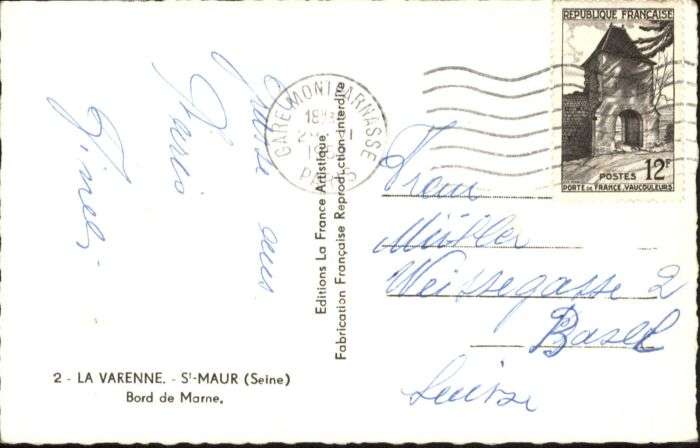 Grüsse aus
Paris
GARE MONTPARNASSE
18H
PARIS
Editions La France Artistique
Fabrication Française Reproduction interdite
REPUBLIQUE FRANÇAISE
POSTES 12F
PORTE DE FRANCE. VAUCOULEURS
Frau
Müller
Weissegasse 2
Basel
Suisse
2 - LA VARENNE. - St-MAUR (Seine)
Bord de Marne.